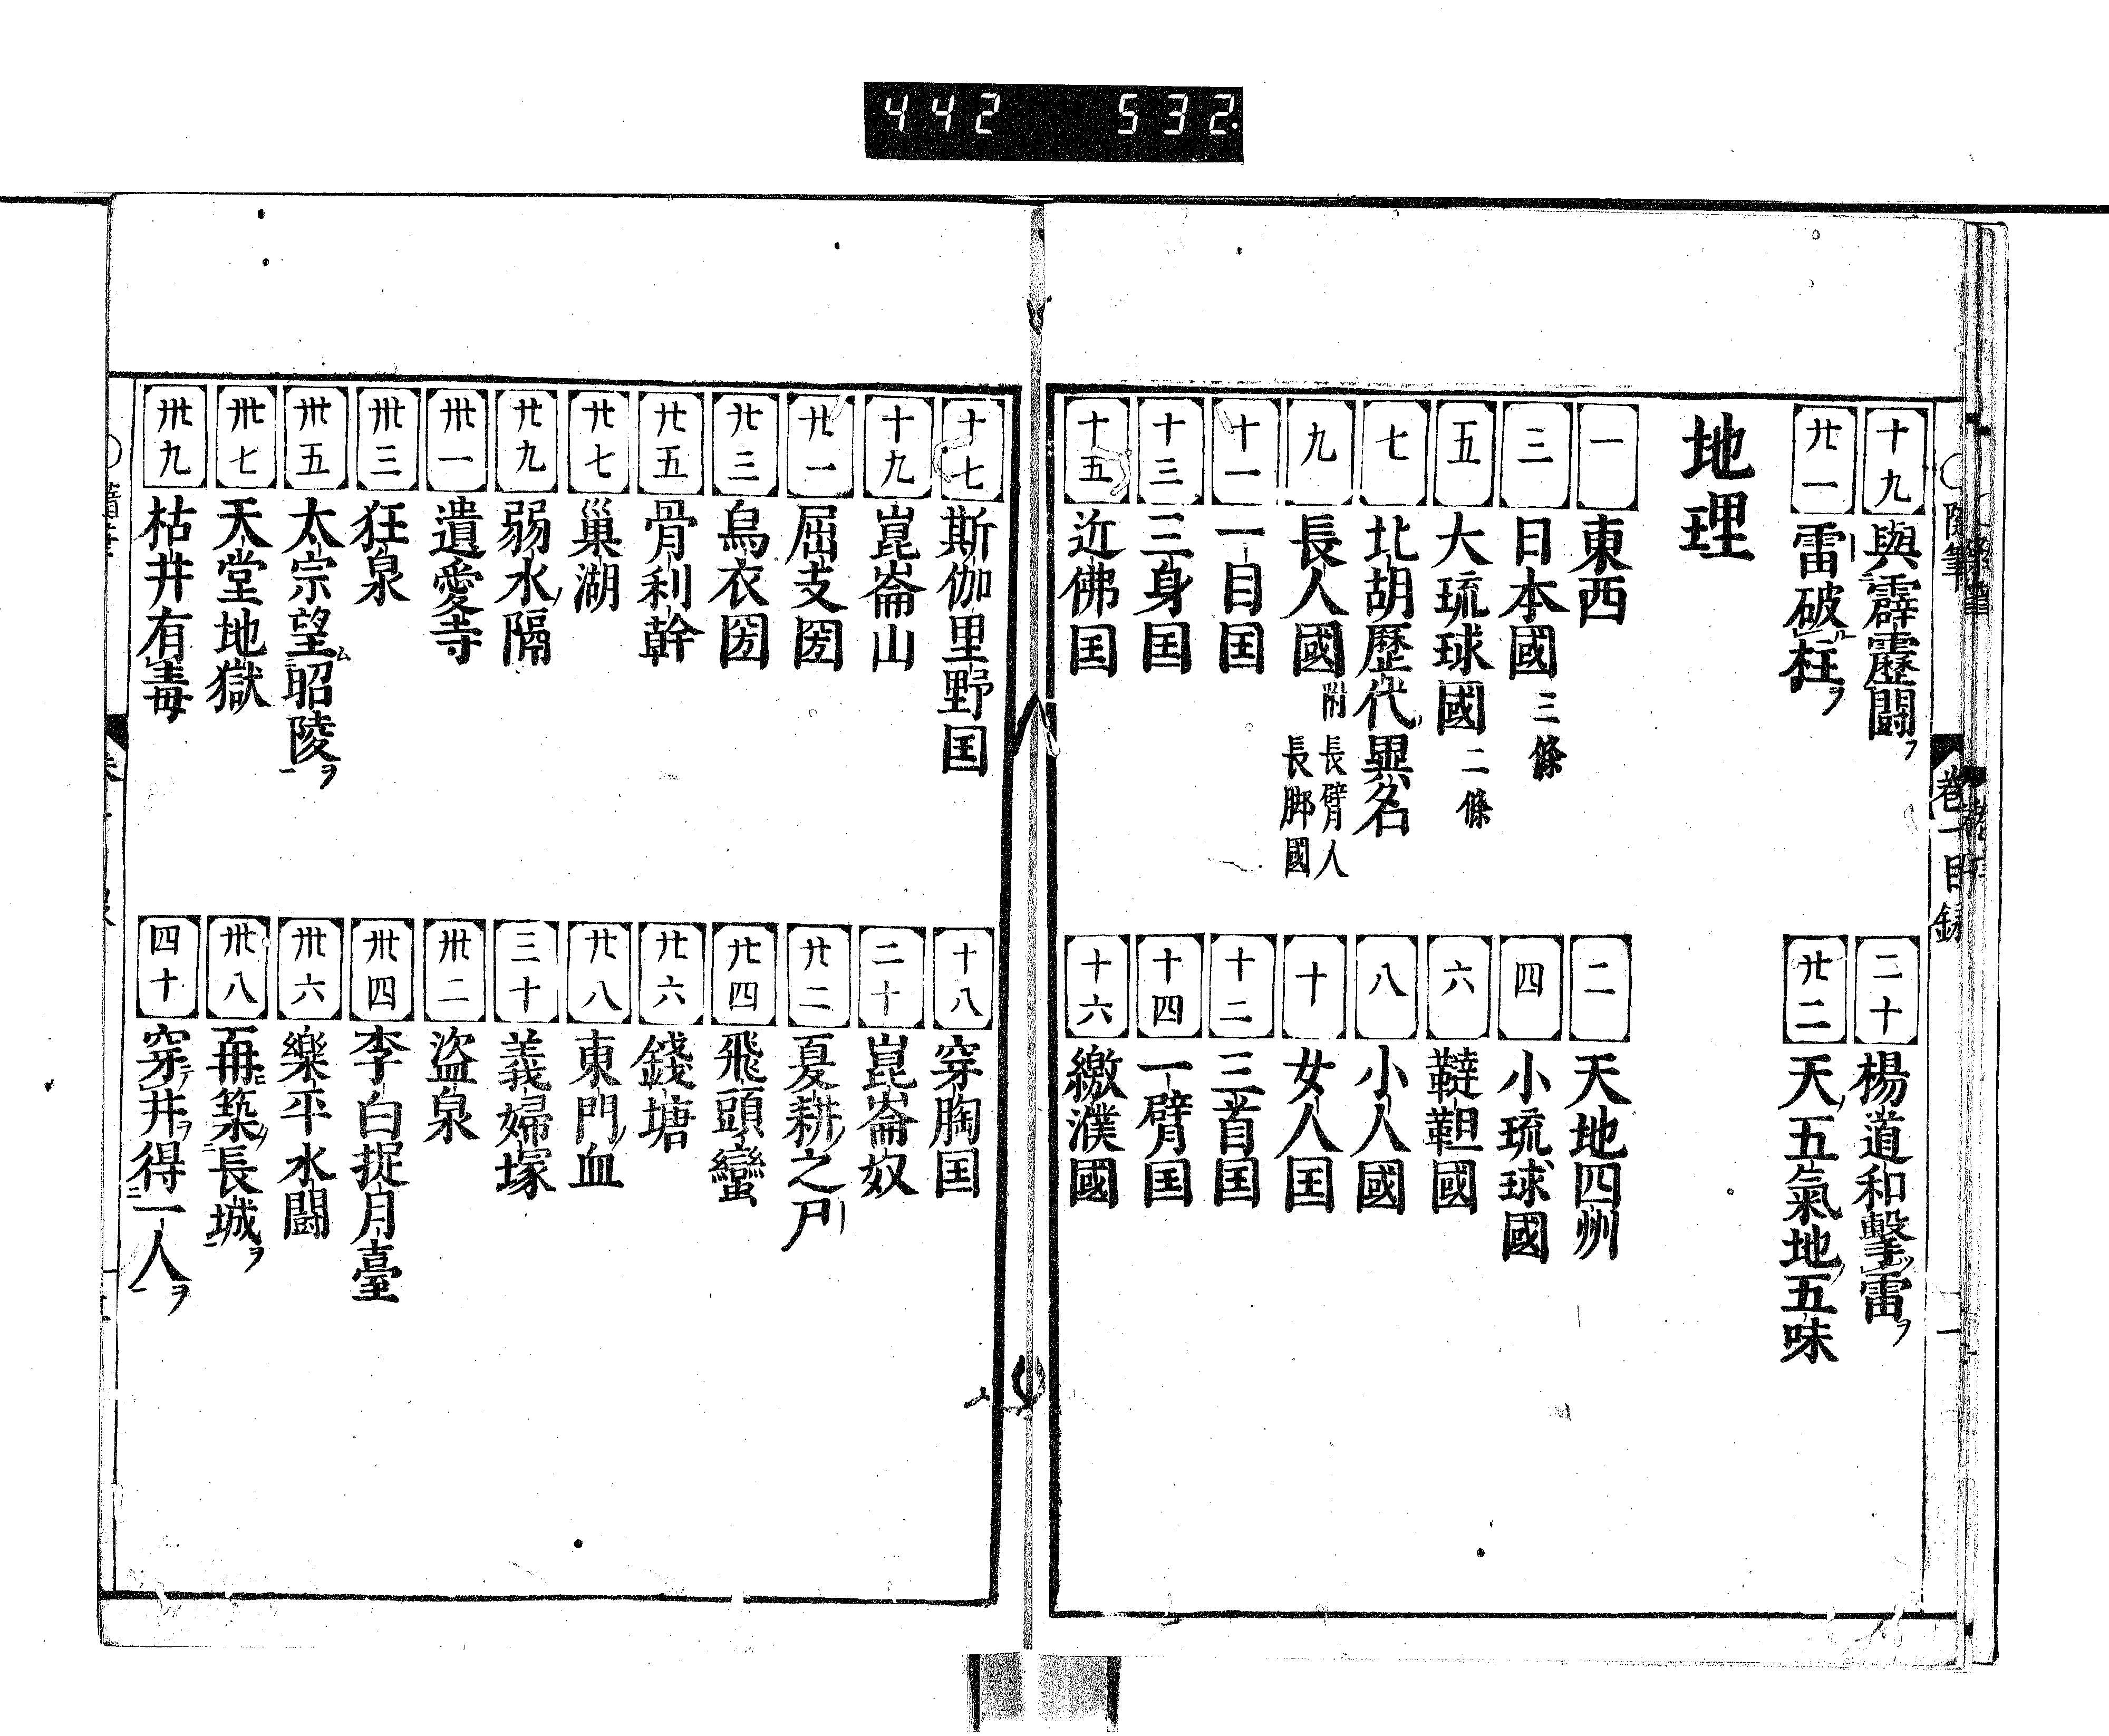 442 532
十九 與霹靂鬪ヲ
二十 楊道和擊雷ヲ
廿一 雷破柱ヲ
廿二 天五氣地五味
地理
一 東西
二 天地四州
三 日本國 三條
四 小琉球國
五 大琉球國 二條
六 韃靼國
七 北胡歷代異名
八 小人國
九 長人國 附 長臂人 長脚國
十 女人国
十一 一目国
十二 三首国
十三 三身国
十四 一臂国
十五 近佛国
十六 繳濮國
十七 斯伽里野国
十八 穿胸国
十九 崑崙山
二十 崑崙奴
廿一 屈支圀
廿二 夏耕之尸
廿三 烏衣圀
廿四 飛頭蠻
廿五 骨利幹
廿六 錢塘
廿七 巢湖
廿八 東門血
廿九 弱水隔
三十 義婦塚
卅一 遺愛寺
卅二 盜泉
卅三 狂泉
卅四 李白捉月臺
卅五 太宗望ム昭陵ヲ
卅六 樂平水鬪
卅七 天堂地獄
卅八 再築長城ヲ
卅九 枯井有毒
四十 穿テ井ヲ得二一人ヲ
卷一目録